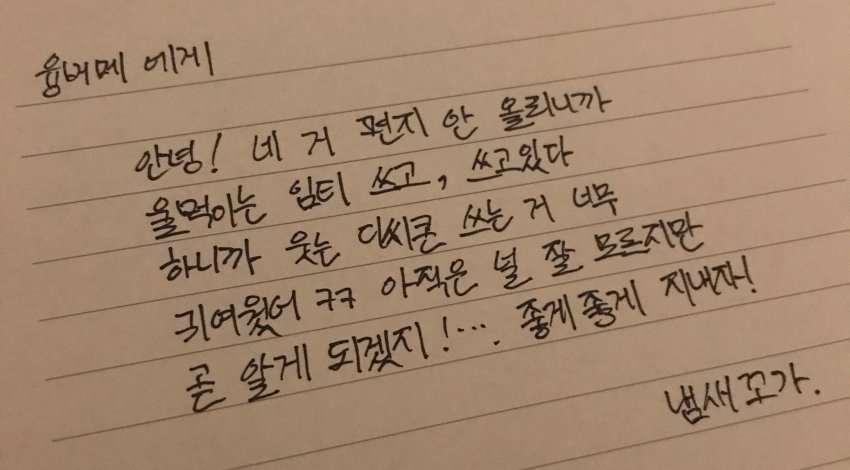 윰버메 에게
안녕! 네 거 편지 안 올리니까
울먹이는 임티 쓰고, 쓰고있다
하니까 웃는 디씨콘 쓰는 거 너무
귀여웠어 ㅋㅋ 아직은 널 잘 모르지만
곧 알게 되겠지!…. 좋게좋게 지내자!
냄새꼬가.